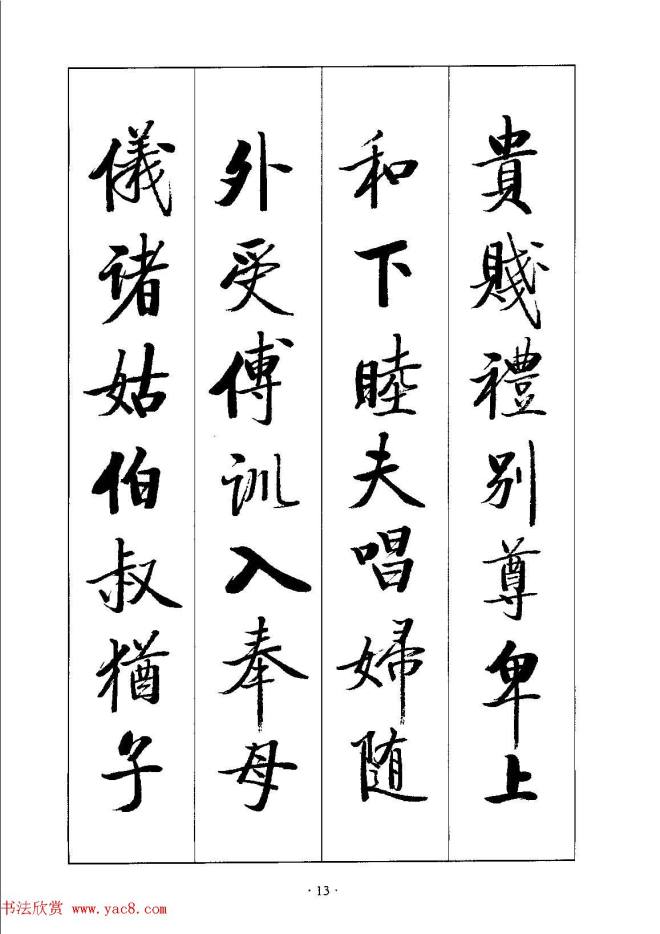 貴賤禮別尊卑上
和下睦夫唱婦随
外受傅訓入奉母
儀诸姑伯叔猶子
· 13 ·
书法欣赏 www.yac8.com